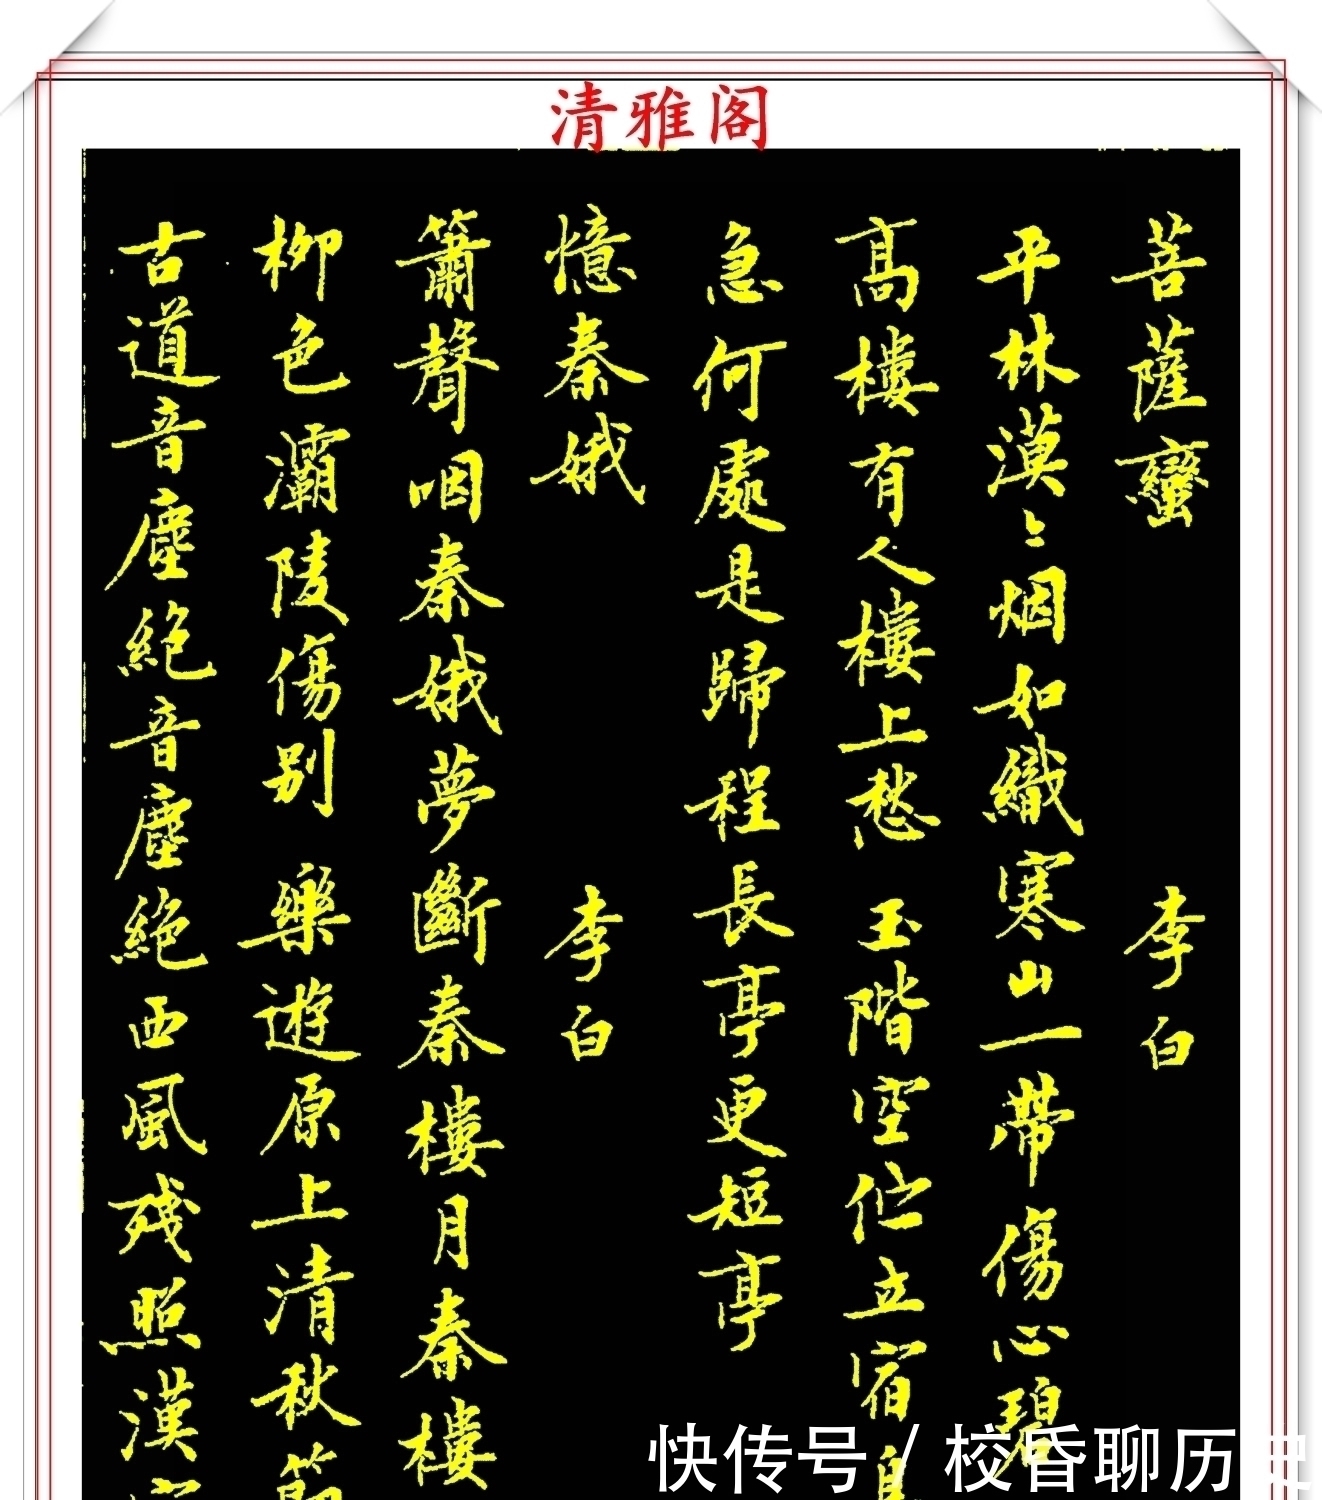 清雅阁
菩薩蠻 李白
平林漠〻烟如織寒山一帶傷心碧
高樓有人樓上愁 玉階空伫立宿鳥
急何處是歸程長亭更短亭
憶秦娥 李白
簫聲咽秦娥夢斷秦樓月秦樓
柳色灞陵傷别 樂遊原上清秋節
古道音塵絕音塵絕西風殘照漢家
快传号 / 校昏聊历史